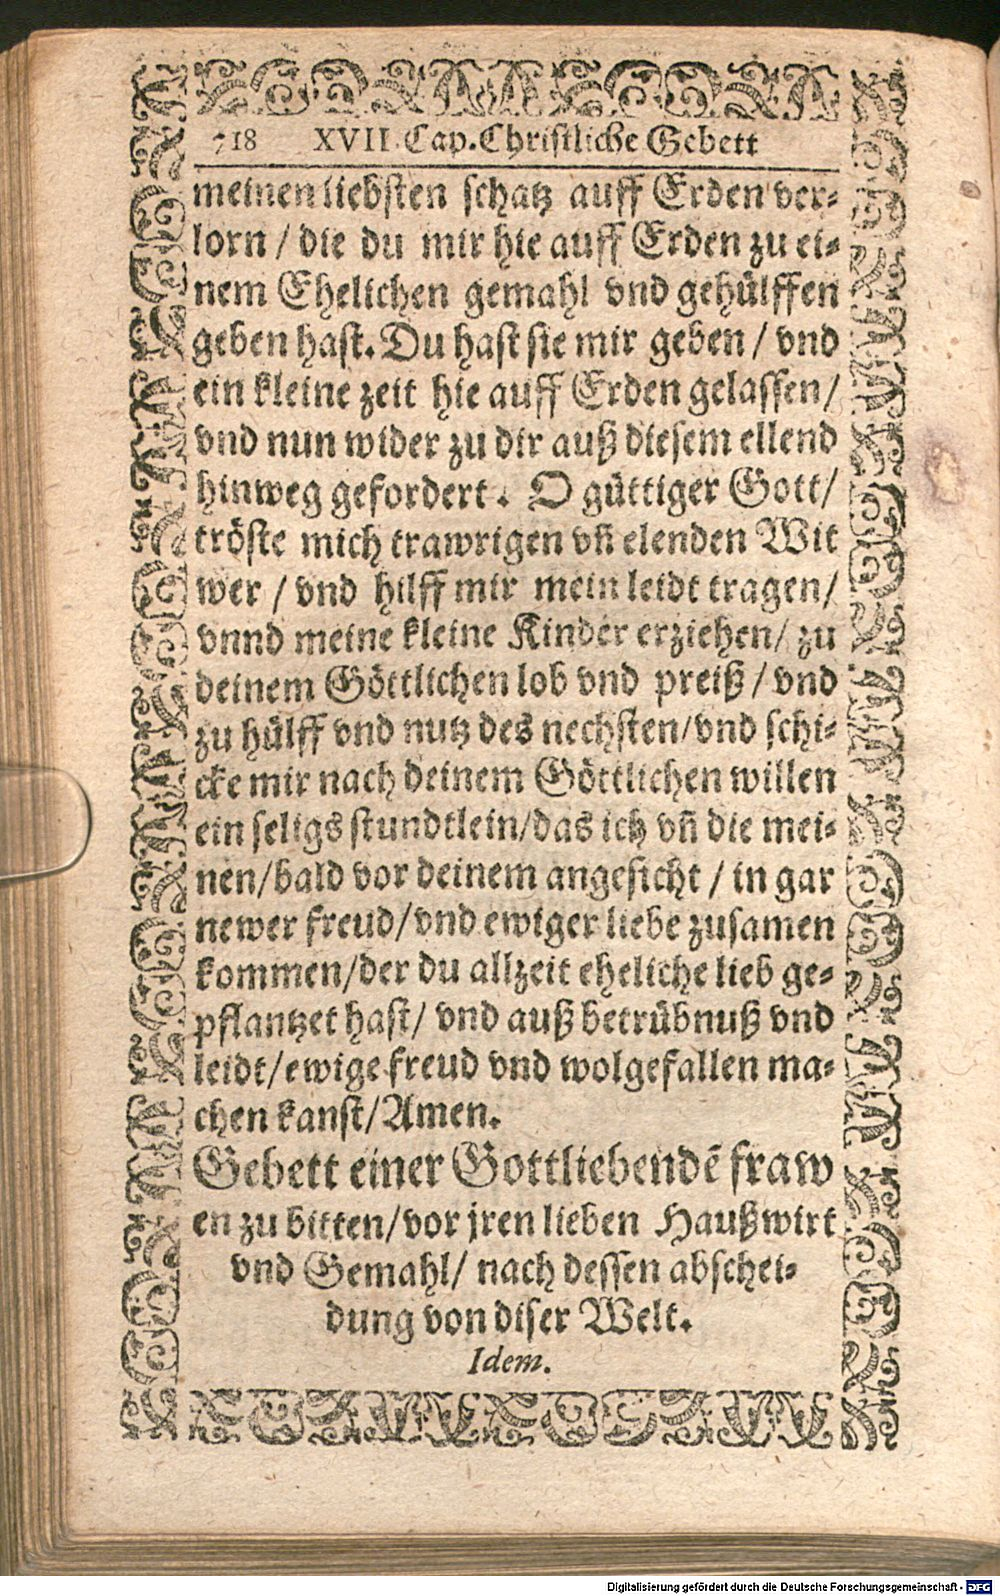 718 XVII. Cap. Christliche Gebett
meinen liebsten schatz auff Erden ver-
lorn / die du mir hie auff Erden zu ei-
nem Ehelichen gemahl vnd gehülffen
geben hast. Du hast sie mir geben / vnd
ein kleine zeit hie auff Erden gelassen/
vnd nun wider zu dir auß diesem ellend
hinweg gefordert. O güttiger Gott/
tröste mich trawrigen vñ elenden Wit
wer / vnd hilff mir mein leidt tragen/
vnnd meine kleine Kinder erziehen/ zu
deinem Göttlichen lob vnd preiß / vnd
zu hülff vnd nutz des nechsten/vnd schi-
cke mir nach deinem Göttlichen willen
ein seligs stundtlein/das ich vñ die mei-
nen/bald vor deinem angesicht / in gar
newer freud/vnd ewiger liebe zusamen
kommen/der du allzeit eheliche lieb ge-
pflantzet hast/ vnd auß betrübnuß vnd
leidt/ewige freud vnd wolgefallen ma-
chen kanst/Amen.
Gebett einer Gottliebendẽ fraw
en zu bitten/vor jren lieben Haußwirt
vnd Gemahl/ nach dessen abschei-
dung von diser Welt.
Idem.
Digitalisierung gefördert durch die Deutsche Forschungsgemeinschaft - DFG